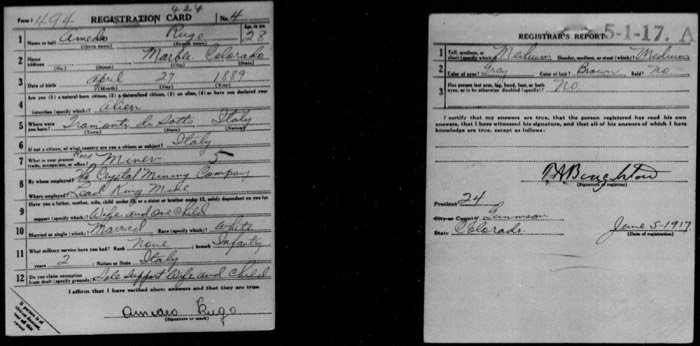 Form 1 494 REGISTRATION CARD 424 No. 4
1 Name in full Amedeo Rugo Age, in yrs. 28
(Given name) (Family name)
2 Home address Marble Colorado
(No.) (Street) (City) (State)
3 Date of birth April 27 1889
(Month) (Day) (Year)
4 Are you (1) a natural-born citizen, (2) a naturalized citizen, (3) an alien, (4) or have you declared your
intention (specify which)? Alien
5 Where were you born? Tramonti di Sotto Italy
(Town) (State) (Nation)
6 If not a citizen, of what country are you a citizen or subject? Italy
7 What is your present trade, occupation, or office? Miner 5
8 By whom employed? The Crystal Mining Company
Where employed? Lead King Mine
9 Have you a father, mother, wife, child under 12, or a sister or brother under 12, solely dependent on you for
support (specify which)? Wife and one child
10 Married or single (which)? Married Race (specify which)? White
11 What military service have you had? Rank None ; branch Infantry
years 2 ; Nation or State Italy
12 Do you claim exemption from draft (specify grounds)? Sole support Wife and child
I affirm that I have verified above answers and that they are true.
Amedeo Rugo
(Signature or mark)
REGISTRAR'S REPORT 5-1-17. A
1 Tall, medium, or short (specify which)? Medium Slender, medium, or stout (which)? Medium
2 Color of eyes? Gray Color of hair? Brown Bald? No
3 Has person lost arm, leg, hand, foot, or both eyes, or is he otherwise disabled (specify)? No
I certify that my answers are true, that the person registered has read his own
answers, that I have witnessed his signature, and that all of his answers of which I have
knowledge are true, except as follows:
(Signature of registrar)
Precinct 24
City or County Gunnison
State Colorado
June 5-1917
(Date of registration)